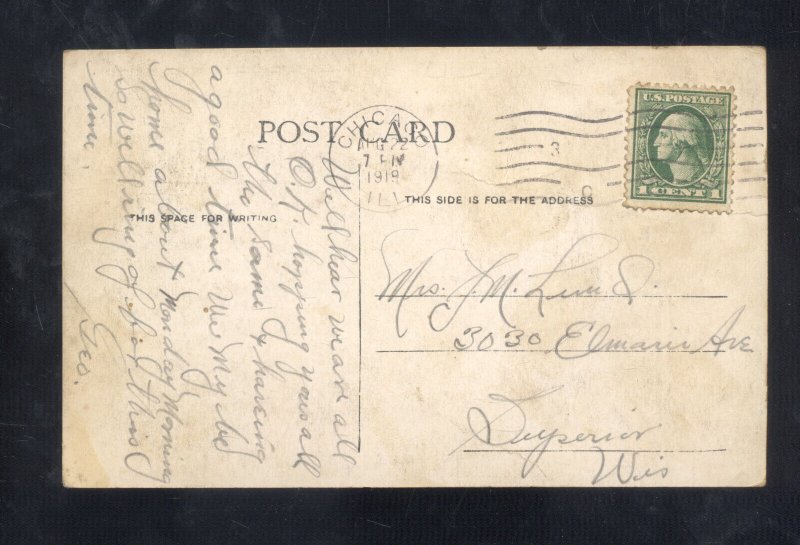 POST CARD
CHICAGO
AUG 22
7 PM
1919
ILL
3
U.S. POSTAGE
1 CENT 1
THIS SPACE FOR WRITING
THIS SIDE IS FOR THE ADDRESS
Well har we are all
O.K. hopping you all
the same & hareing
a good time We My be
home about Monday Morning
So well ring of for this
time.
Geo.
Mrs. J. M.
3030 Elmarie Ave
Superior
Wis